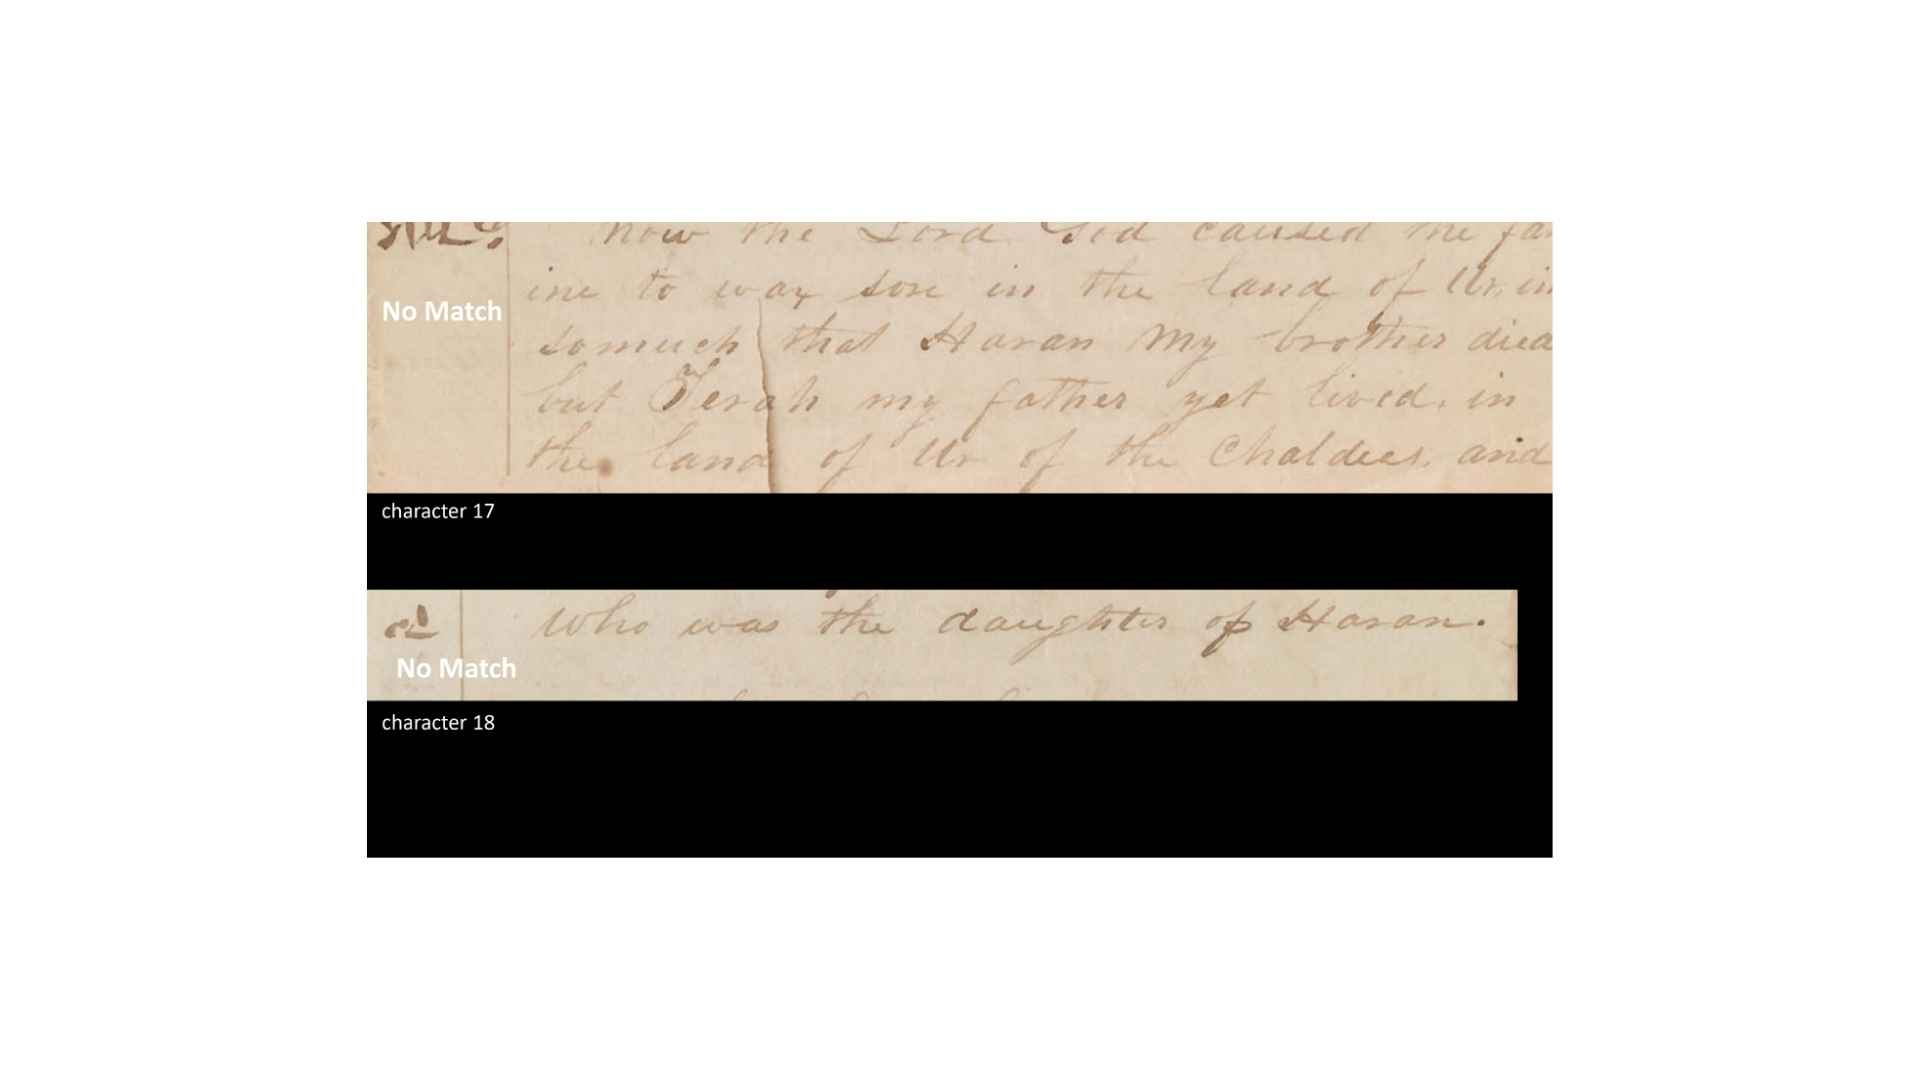 now the Lord God caused the fam
ine to wax sore in the land of Ur, in
somuch that Haran my brother died
but Terah my father yet lived, in
the land of Ur of the Chaldees, and
No Match
character 17
who was the daughter of Haran.
No Match
character 18